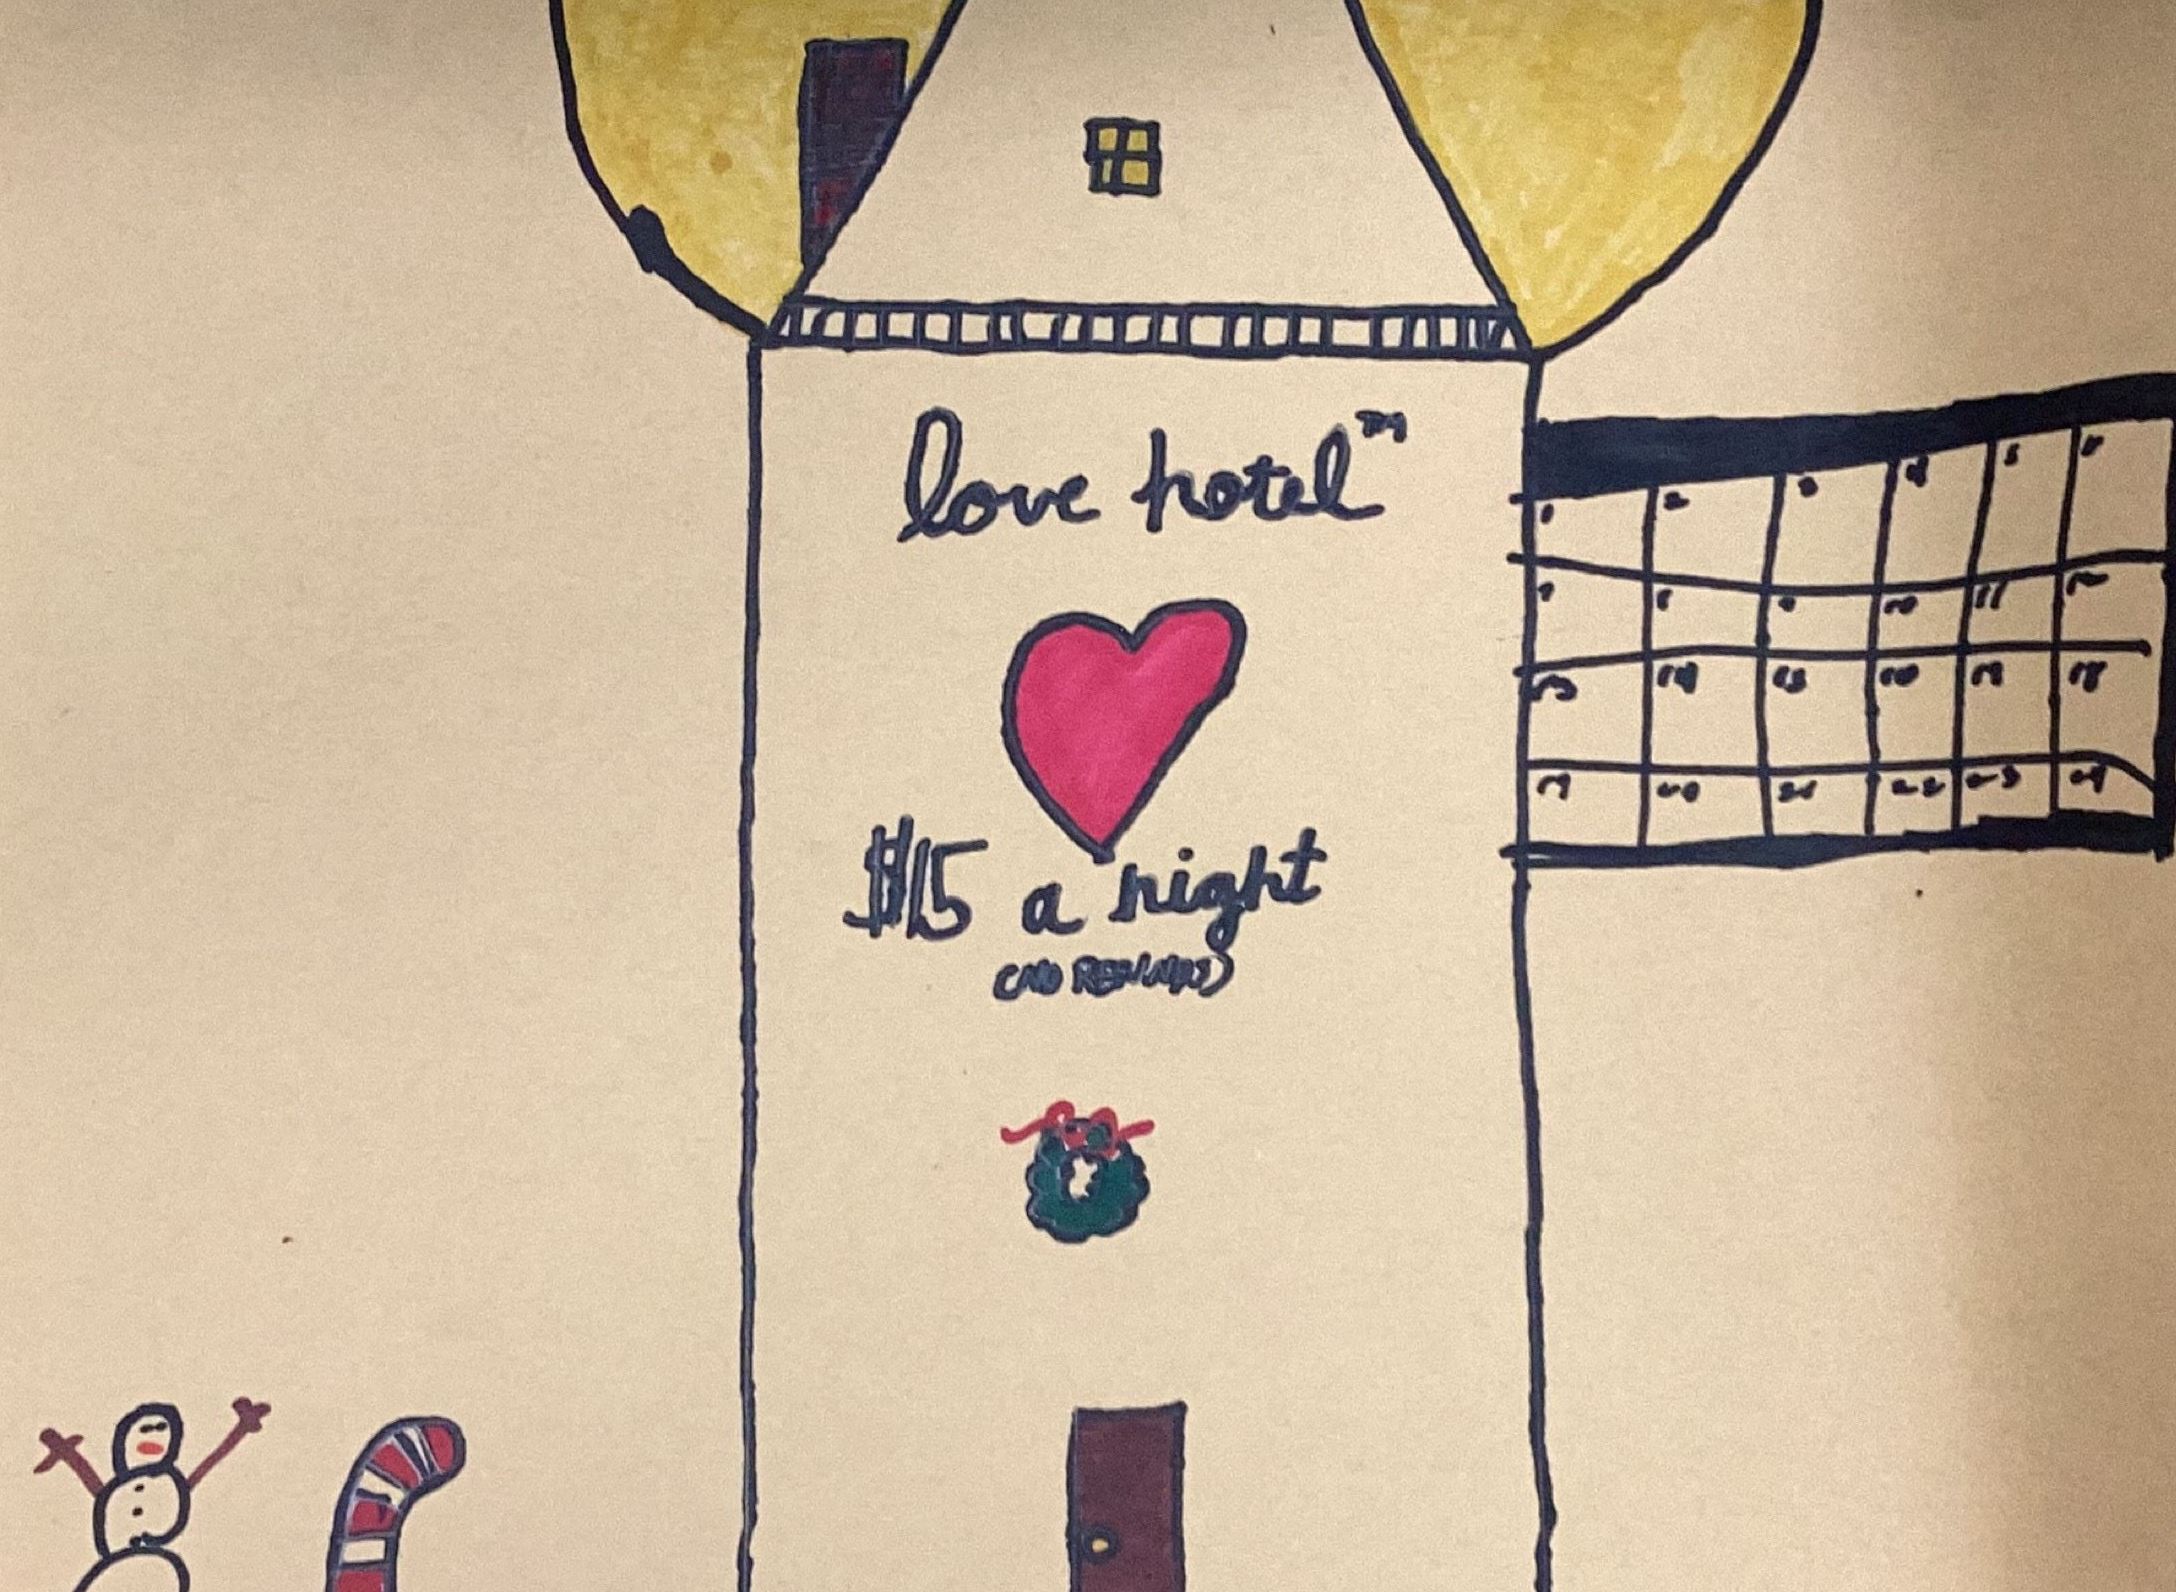 love hotel™
$15 a night
(NO REFUNDS)
1 2 3 4 5
7 8 9 10 11 12
13 14 15 16 17 18
19 20 21 22 23 24